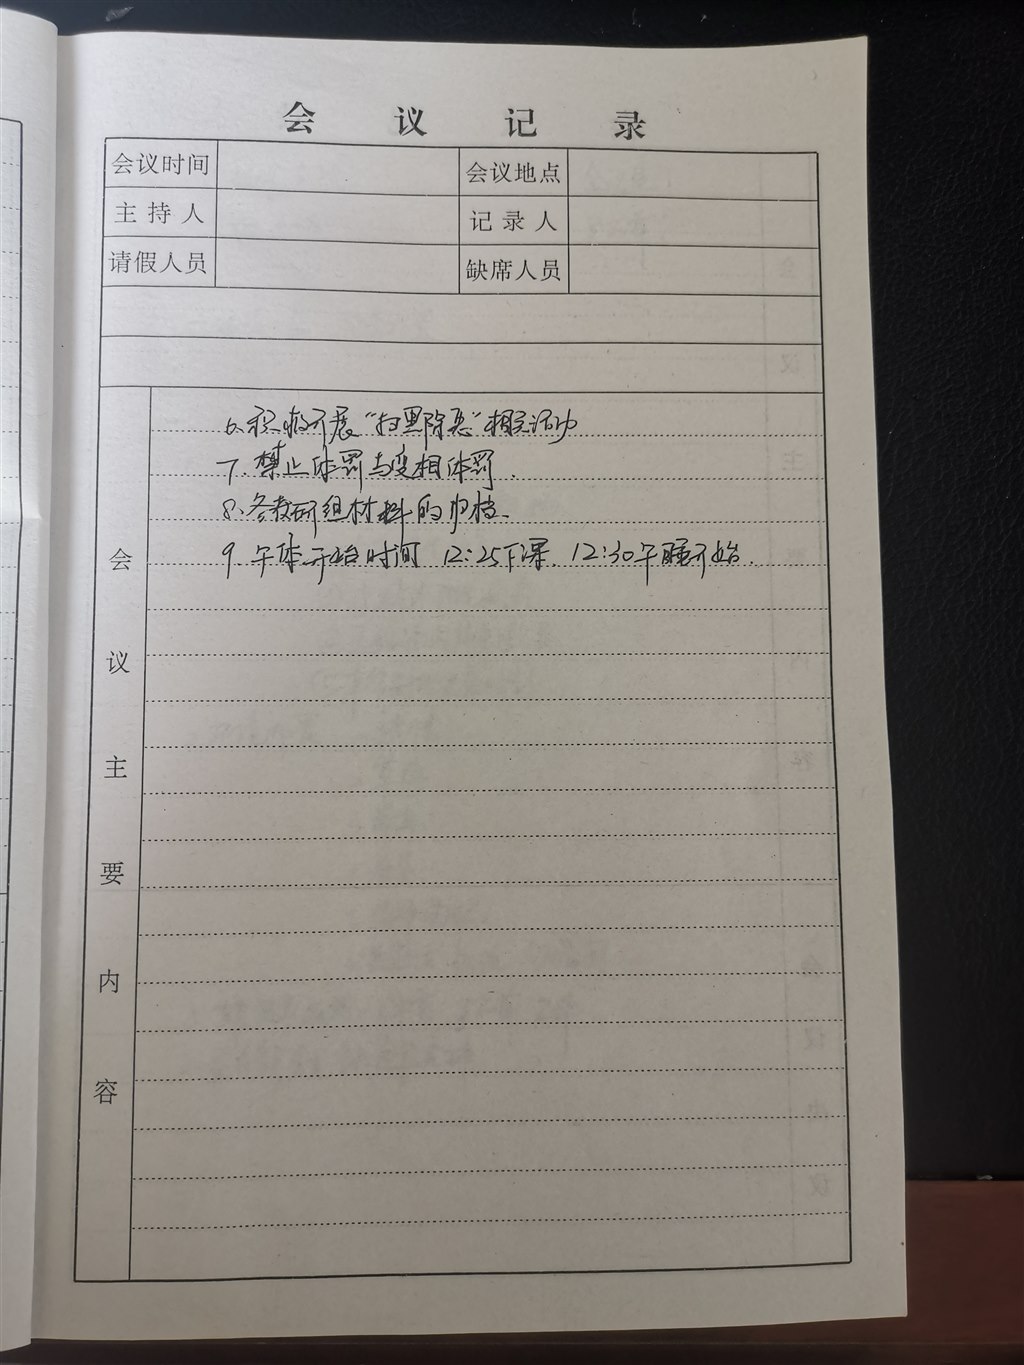 会议记录
会议时间 会议地点
主持人 记录人
请假人员 缺席人员
会议主要内容
6、积极开展“扫黑除恶”相关活动
7、禁止体罚与变相体罚.
8、各教研组材料的归档.
9、午休开始时间 12:25下课, 12:30午睡开始.